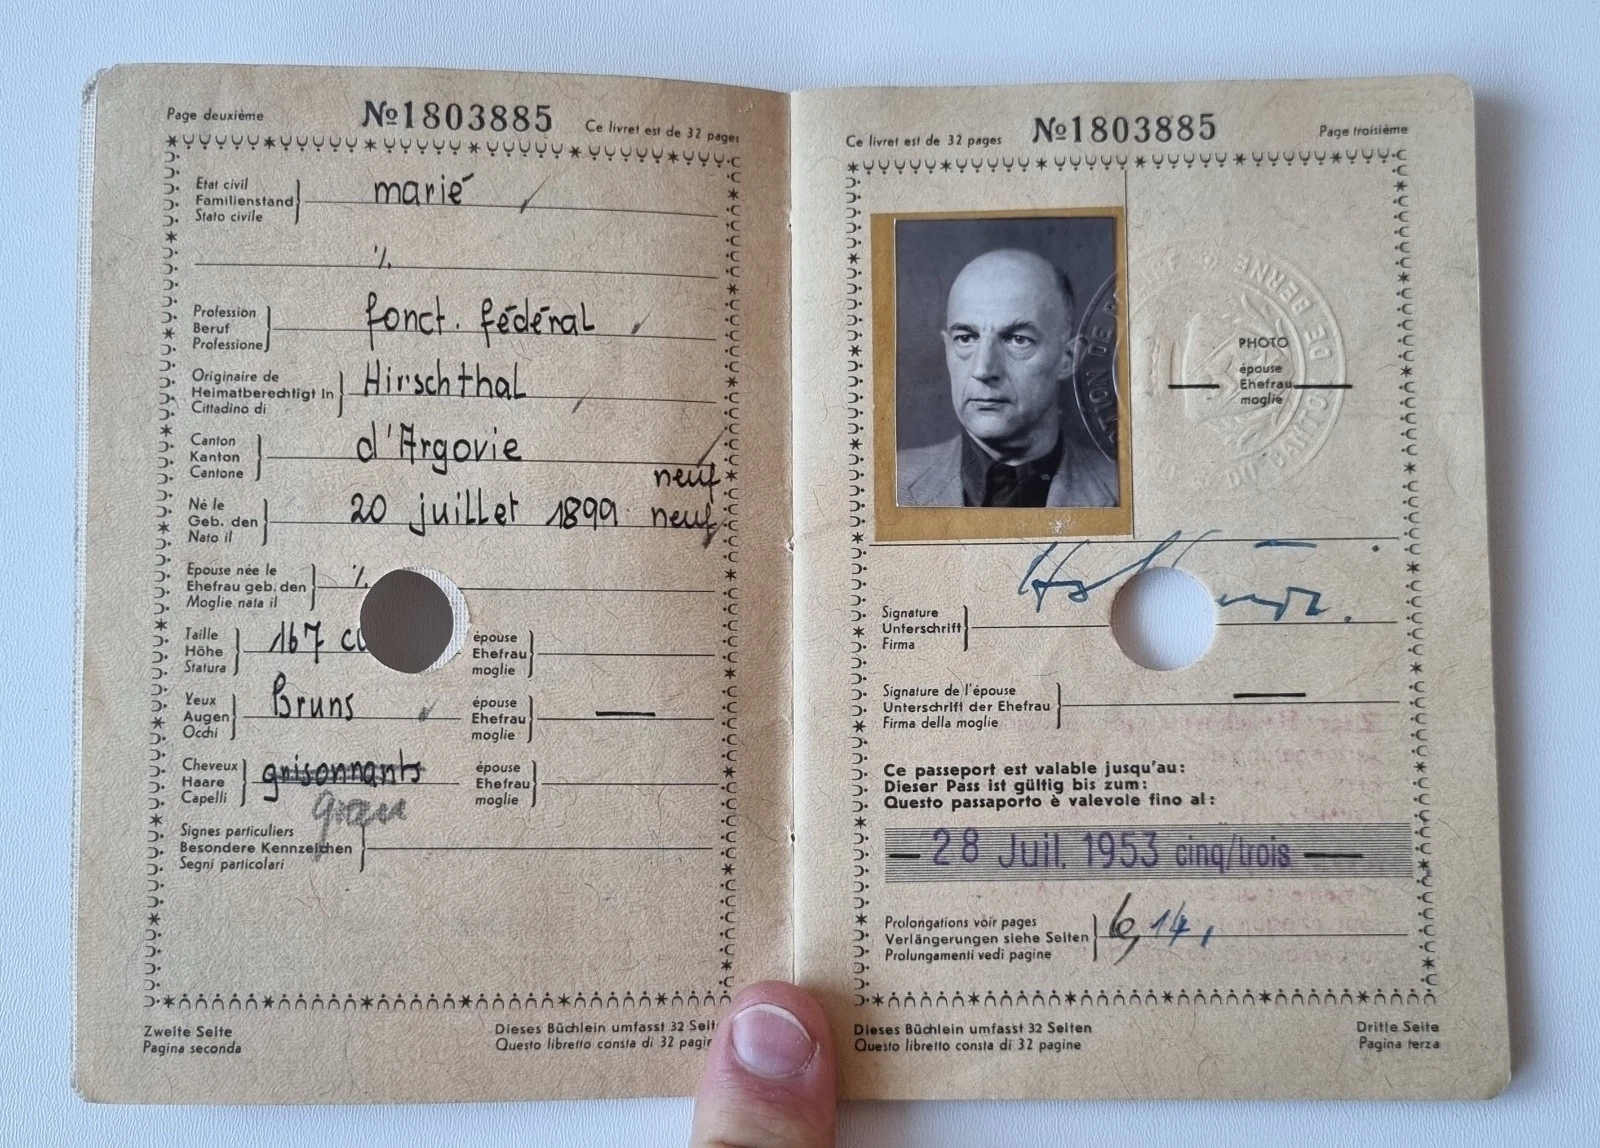 Page deuxième
№1803885
Ce livret est de 32 pages
Etat civil
Familienstand
Stato civile
marié
%
Profession
Beruf
Professione
fonct. fédéral
Originaire de
Heimatberechtigt in
Cittadino di
Hirschthal
Canton
Kanton
Cantone
d'Argovie
neuf
Né le
Geb. den
Nato il
20 juillet 1899 neuf
Epouse née le
Ehefrau geb. den
Moglie nata il
%
Taille
Höhe
Statura
167
épouse
Ehefrau
moglie
Yeux
Augen
Occhi
Bruns
épouse
Ehefrau
moglie
Cheveux
Haare
Capelli
grisonnants
épouse
Ehefrau
moglie
Signes particuliers
Besondere Kennzeichen
Segni particolari
Zweite Seite
Pagina seconda
Dieses Büchlein umfasst 32
Questo libretto consta di 32
Ce livret est de 32 pages
№1803885
Page troisième
DU CANTON DE BERNE
PHOTO
épouse
Ehefrau
moglie
Signature
Unterschrift
Firma
Signature de l'épouse
Unterschrift der Ehefrau
Firma della moglie
Ce passeport est valable jusqu'au:
Dieser Pass ist gültig bis zum:
Questo passaporto è valevole fino al:
— 28 Juil. 1953 cinq/trois —
Prolongations voir pages
Verlängerungen siehe Seiten
Prolungamenti vedi pagine
6, 14,
Dieses Büchlein umfasst 32 Seiten
Questo libretto consta di 32 pagine
Dritte Seite
Pagina terza